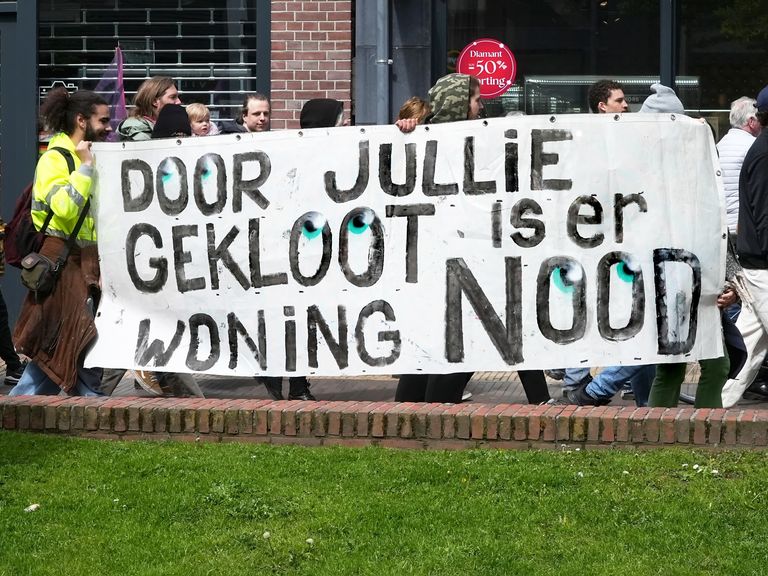 Diamant
50%
DOOR JULLiE
GEKLOOT is er
WONiNG NOOD